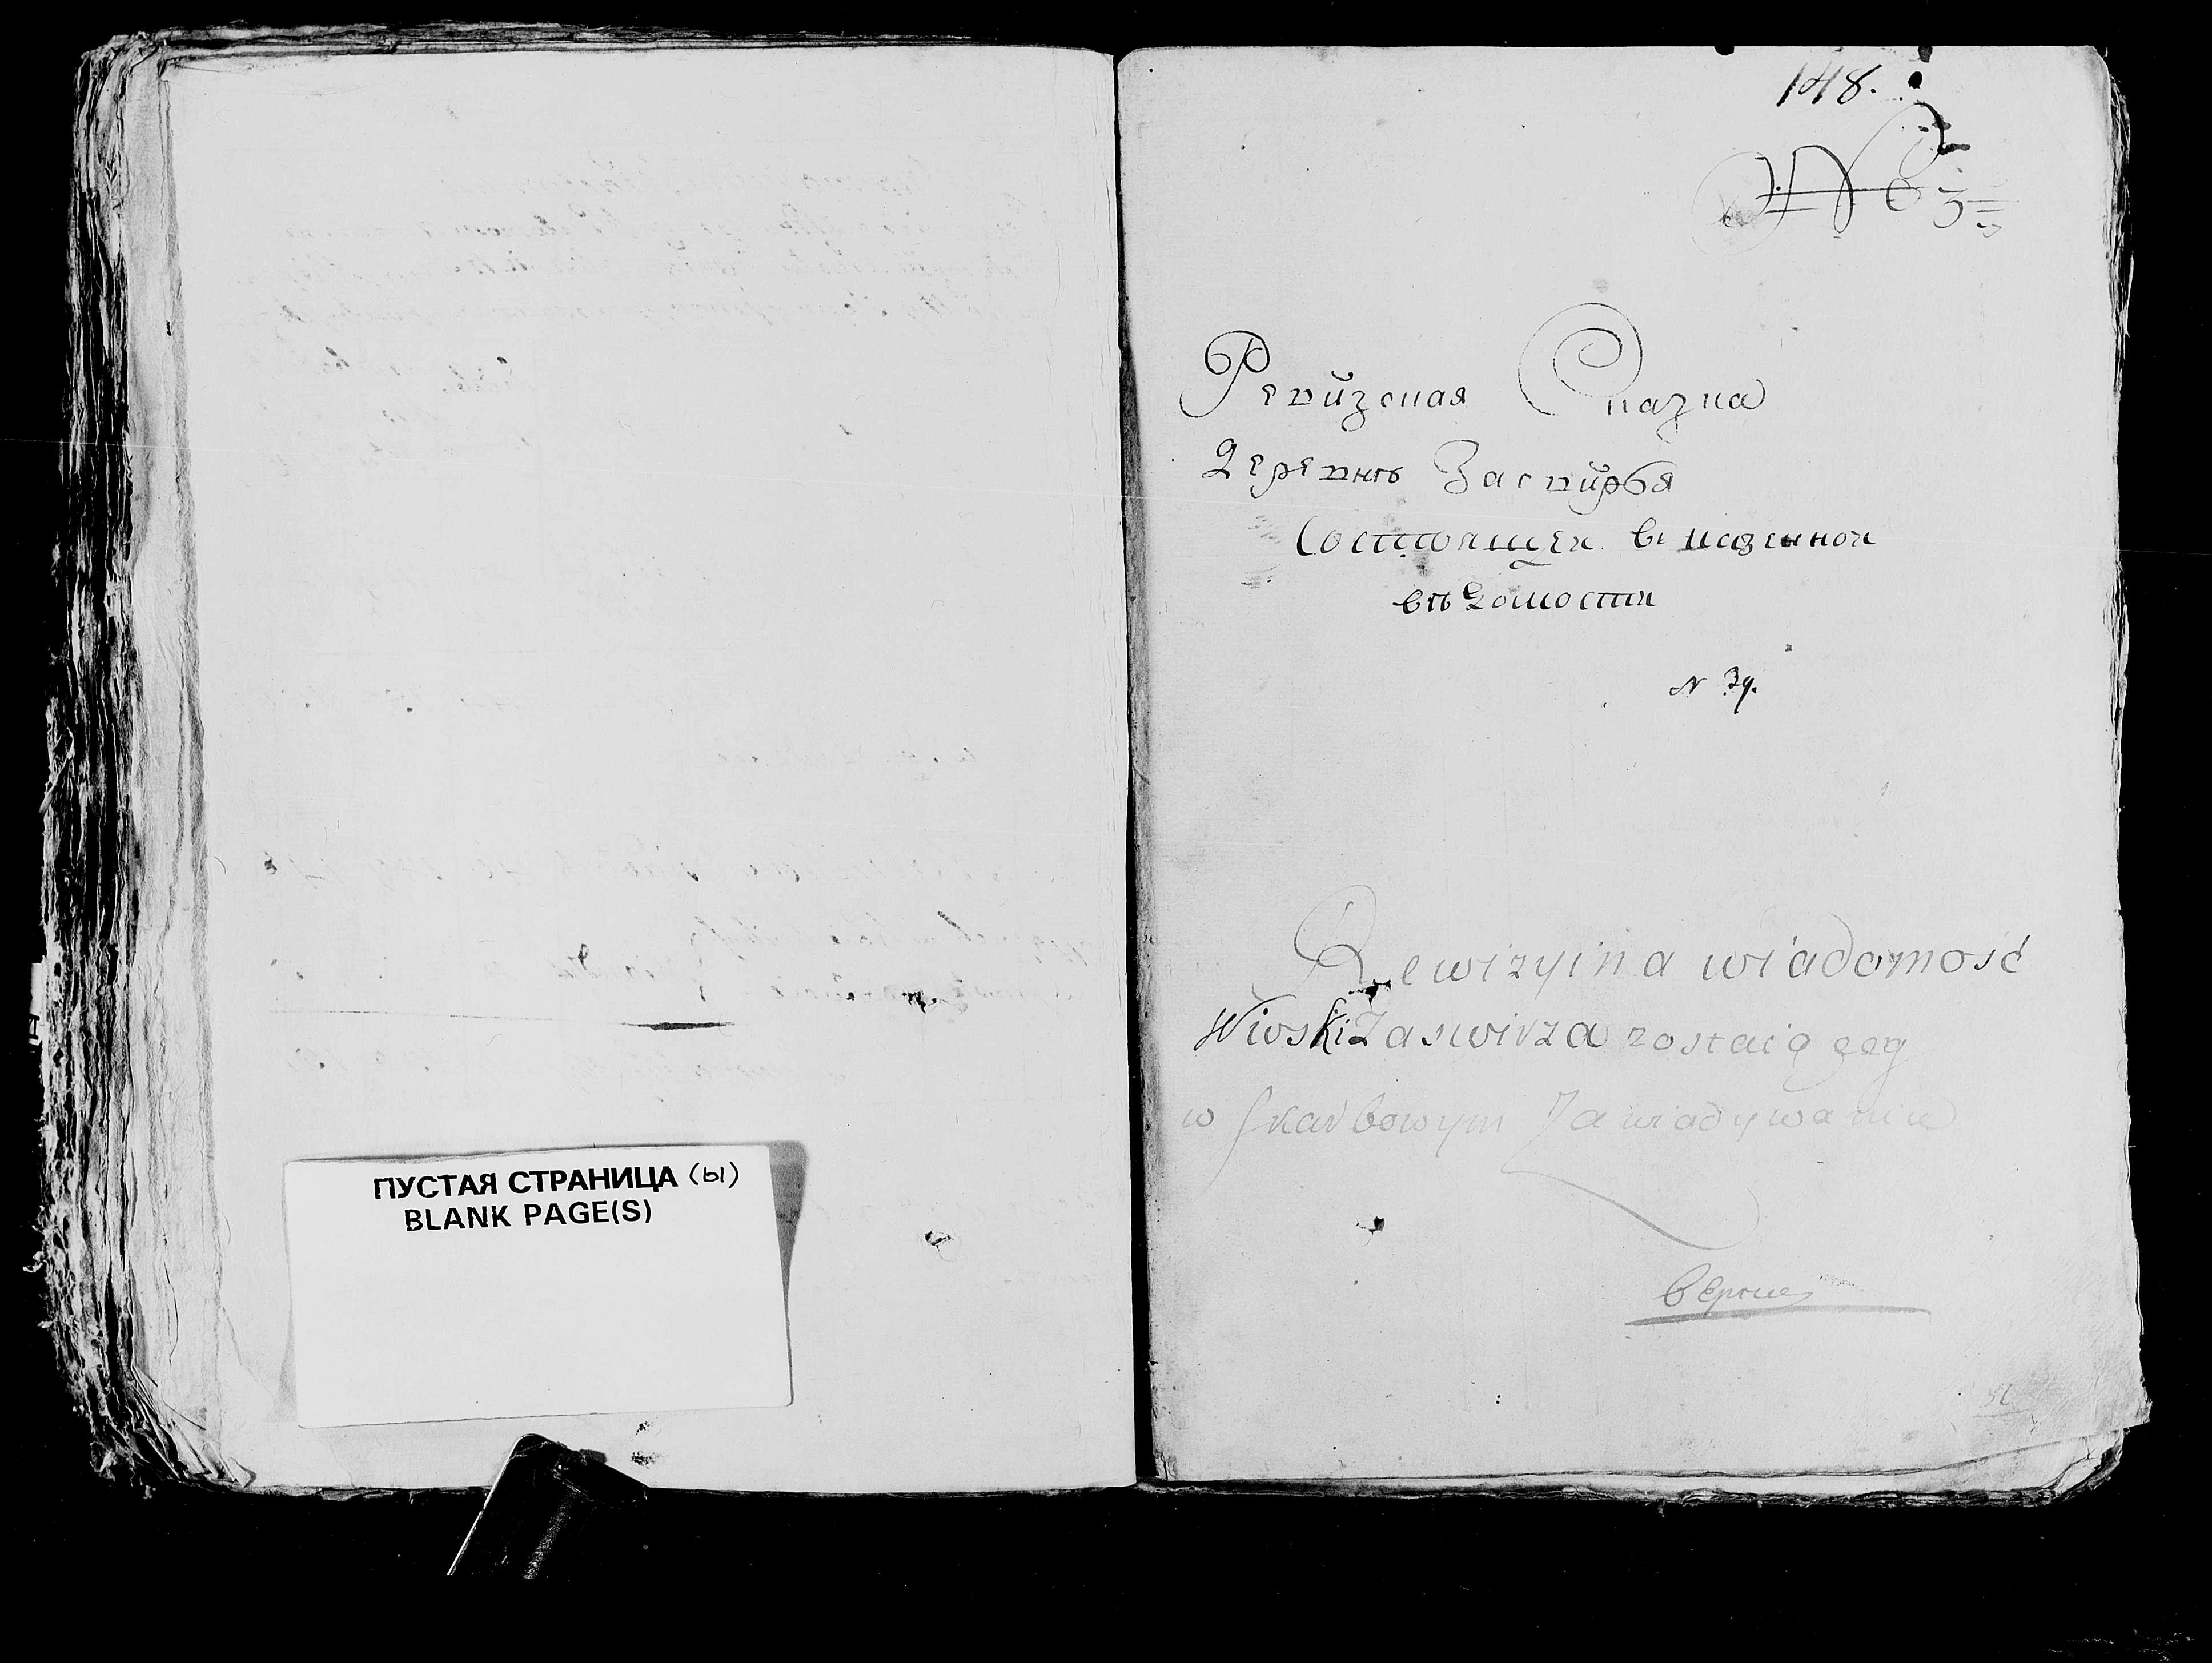 ПУСТАЯ СТРАНИЦА (ы)
BLANK PAGE(S)
148.
№ 3
Ревизская Сказка
деревнѣ Засвирья
Состоящей в казенной
вѣдомости
N 39.
Rewizyina wiadomość
Wioski Zaswirza zostaiącey
w skarbowym Zawiadywaniu